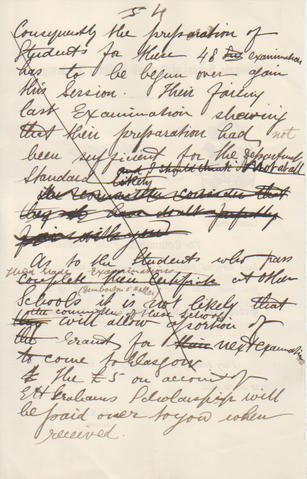 54
Consequently the preparation of
Students for these 48 the examination
has to be begun over again
this Session. Their
last Examination shewing
that their preparation had not
been sufficient for the Department
Standard and I should think is not at all
likely
the committee consider that
they
As to the Students who pass
their trade Examinations
complete their Certificate at other
(Dumbarton &
Schools it is not likely that
the committees of these Schools
they will allow a portion of
the Grant for their next examination
to come to Glasgow
The £5 on account of
EH Grahams Scholarship will
be paid over to you when
received.